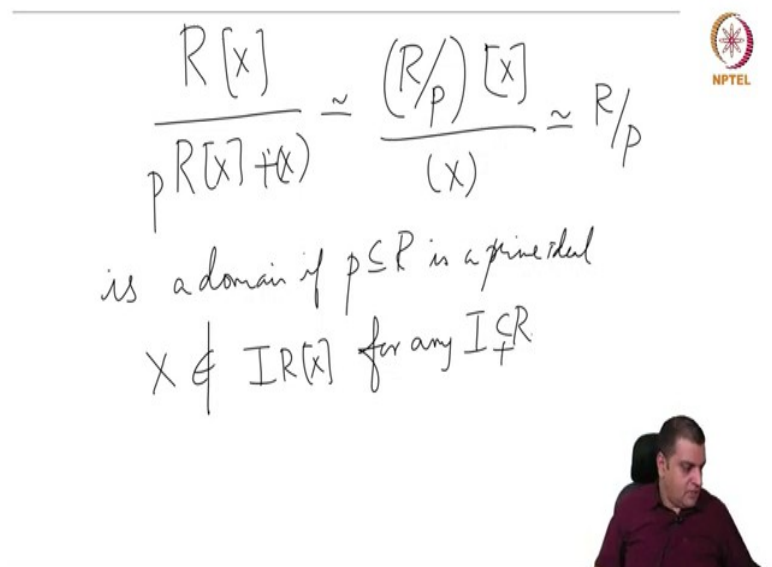 NPTEL
R[x] / pR[x]+(x) ≃ (R/p)[x] / (x) ≃ R/p
is a domain if p⊆R is a prime ideal
X ∉ IR[x] for any I⊊R.